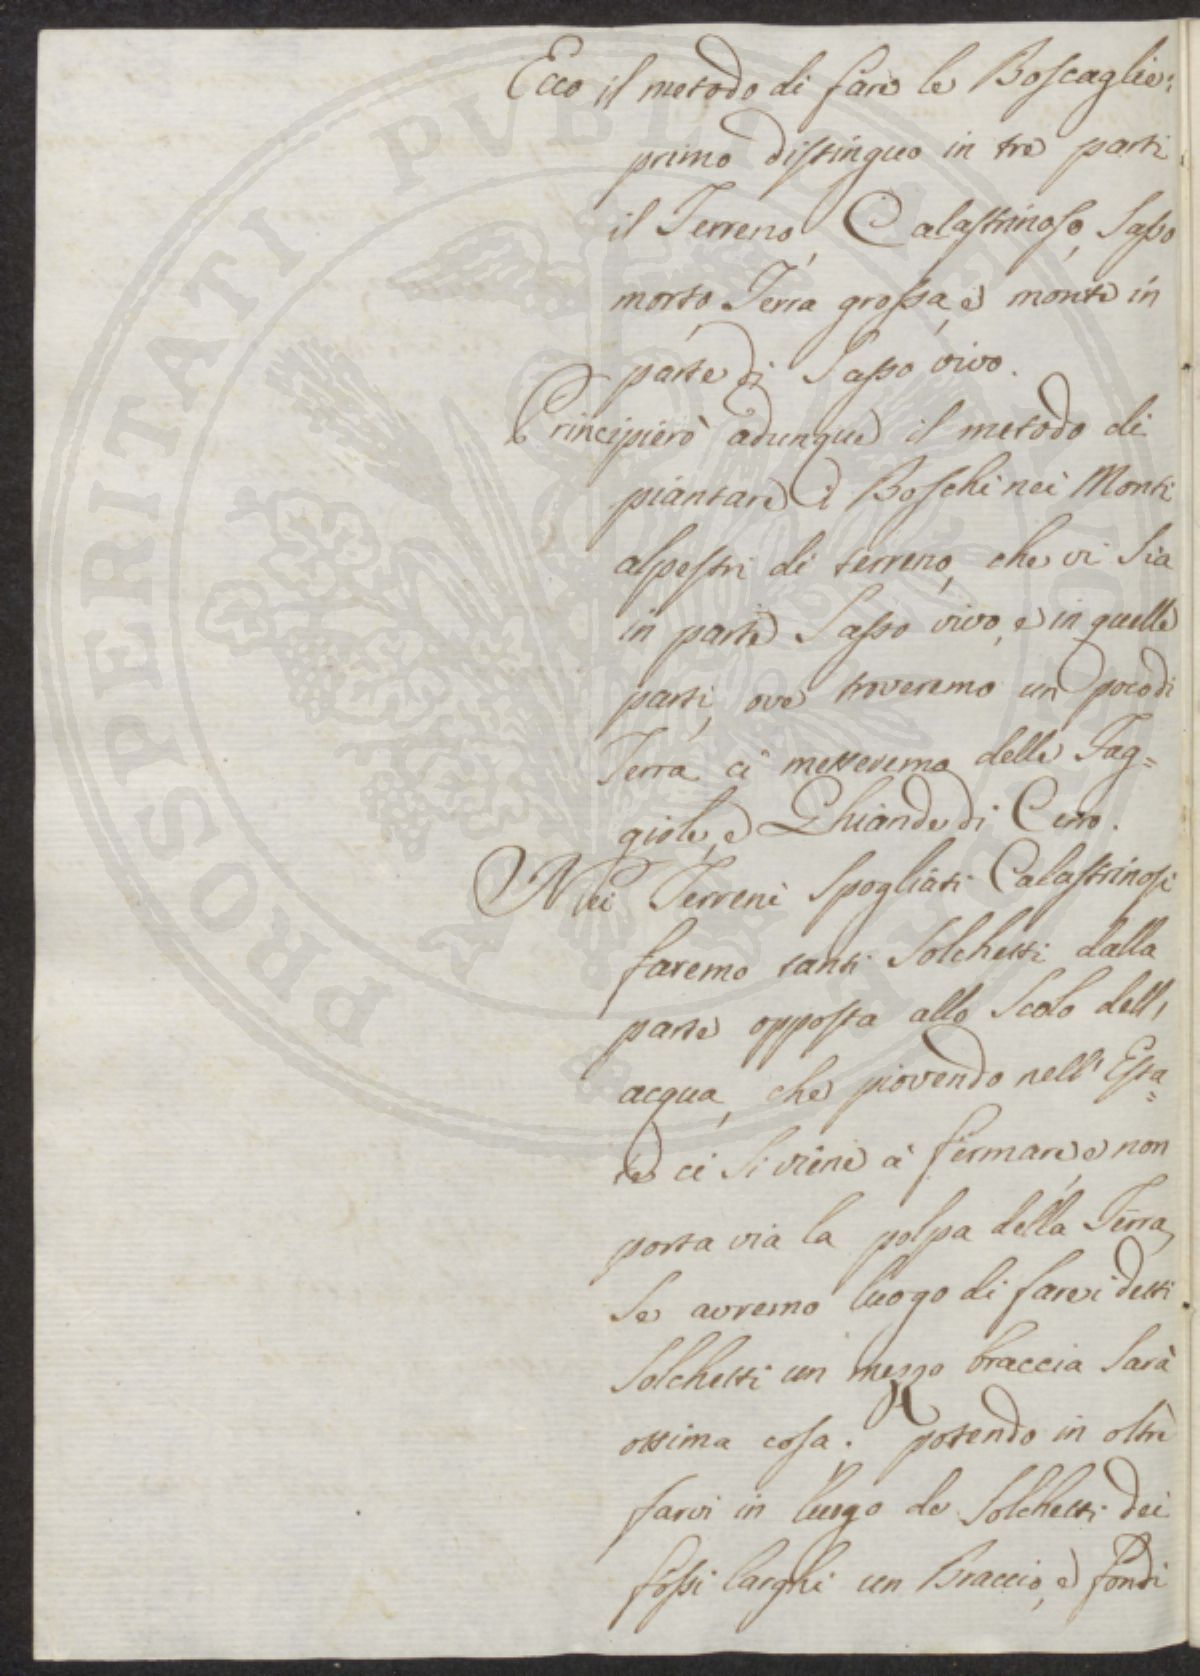 Ecco il metodo di fare le Boscaglie:
primo distinguo in tre parti
il Terreno, Calastrinoso, Sasso
morto, Terra grossa, e monte in
parte di Sasso vivo.
Principierò adunque il metodo di
piantare i Boschi nei Monti
alpestri di terreno, che vi sia
in parte Sasso vivo, e in quelle
parti, ove troveremo un poco di
Terra ci metteremo delle Fag=
giole, e Ghiande di Cerro.
Nei Terreni Spogliati Calastrinosi
faremo tanti Solchetti dalla
parte opposta allo Scolo dell'
acqua, che piovendo nell' Esta=
te ci si viene à fermare, e non
porta via la polpa della Terra,
Se avremo luogo di farvi detti
Solchetti un mezzo braccia Sarà
ottima cosa. potendo in oltre
farvi in luogo de Solchetti dei
fossi larghi un Braccio, e fondi
PROSPERITATI PVBLICAE AVGENDAE